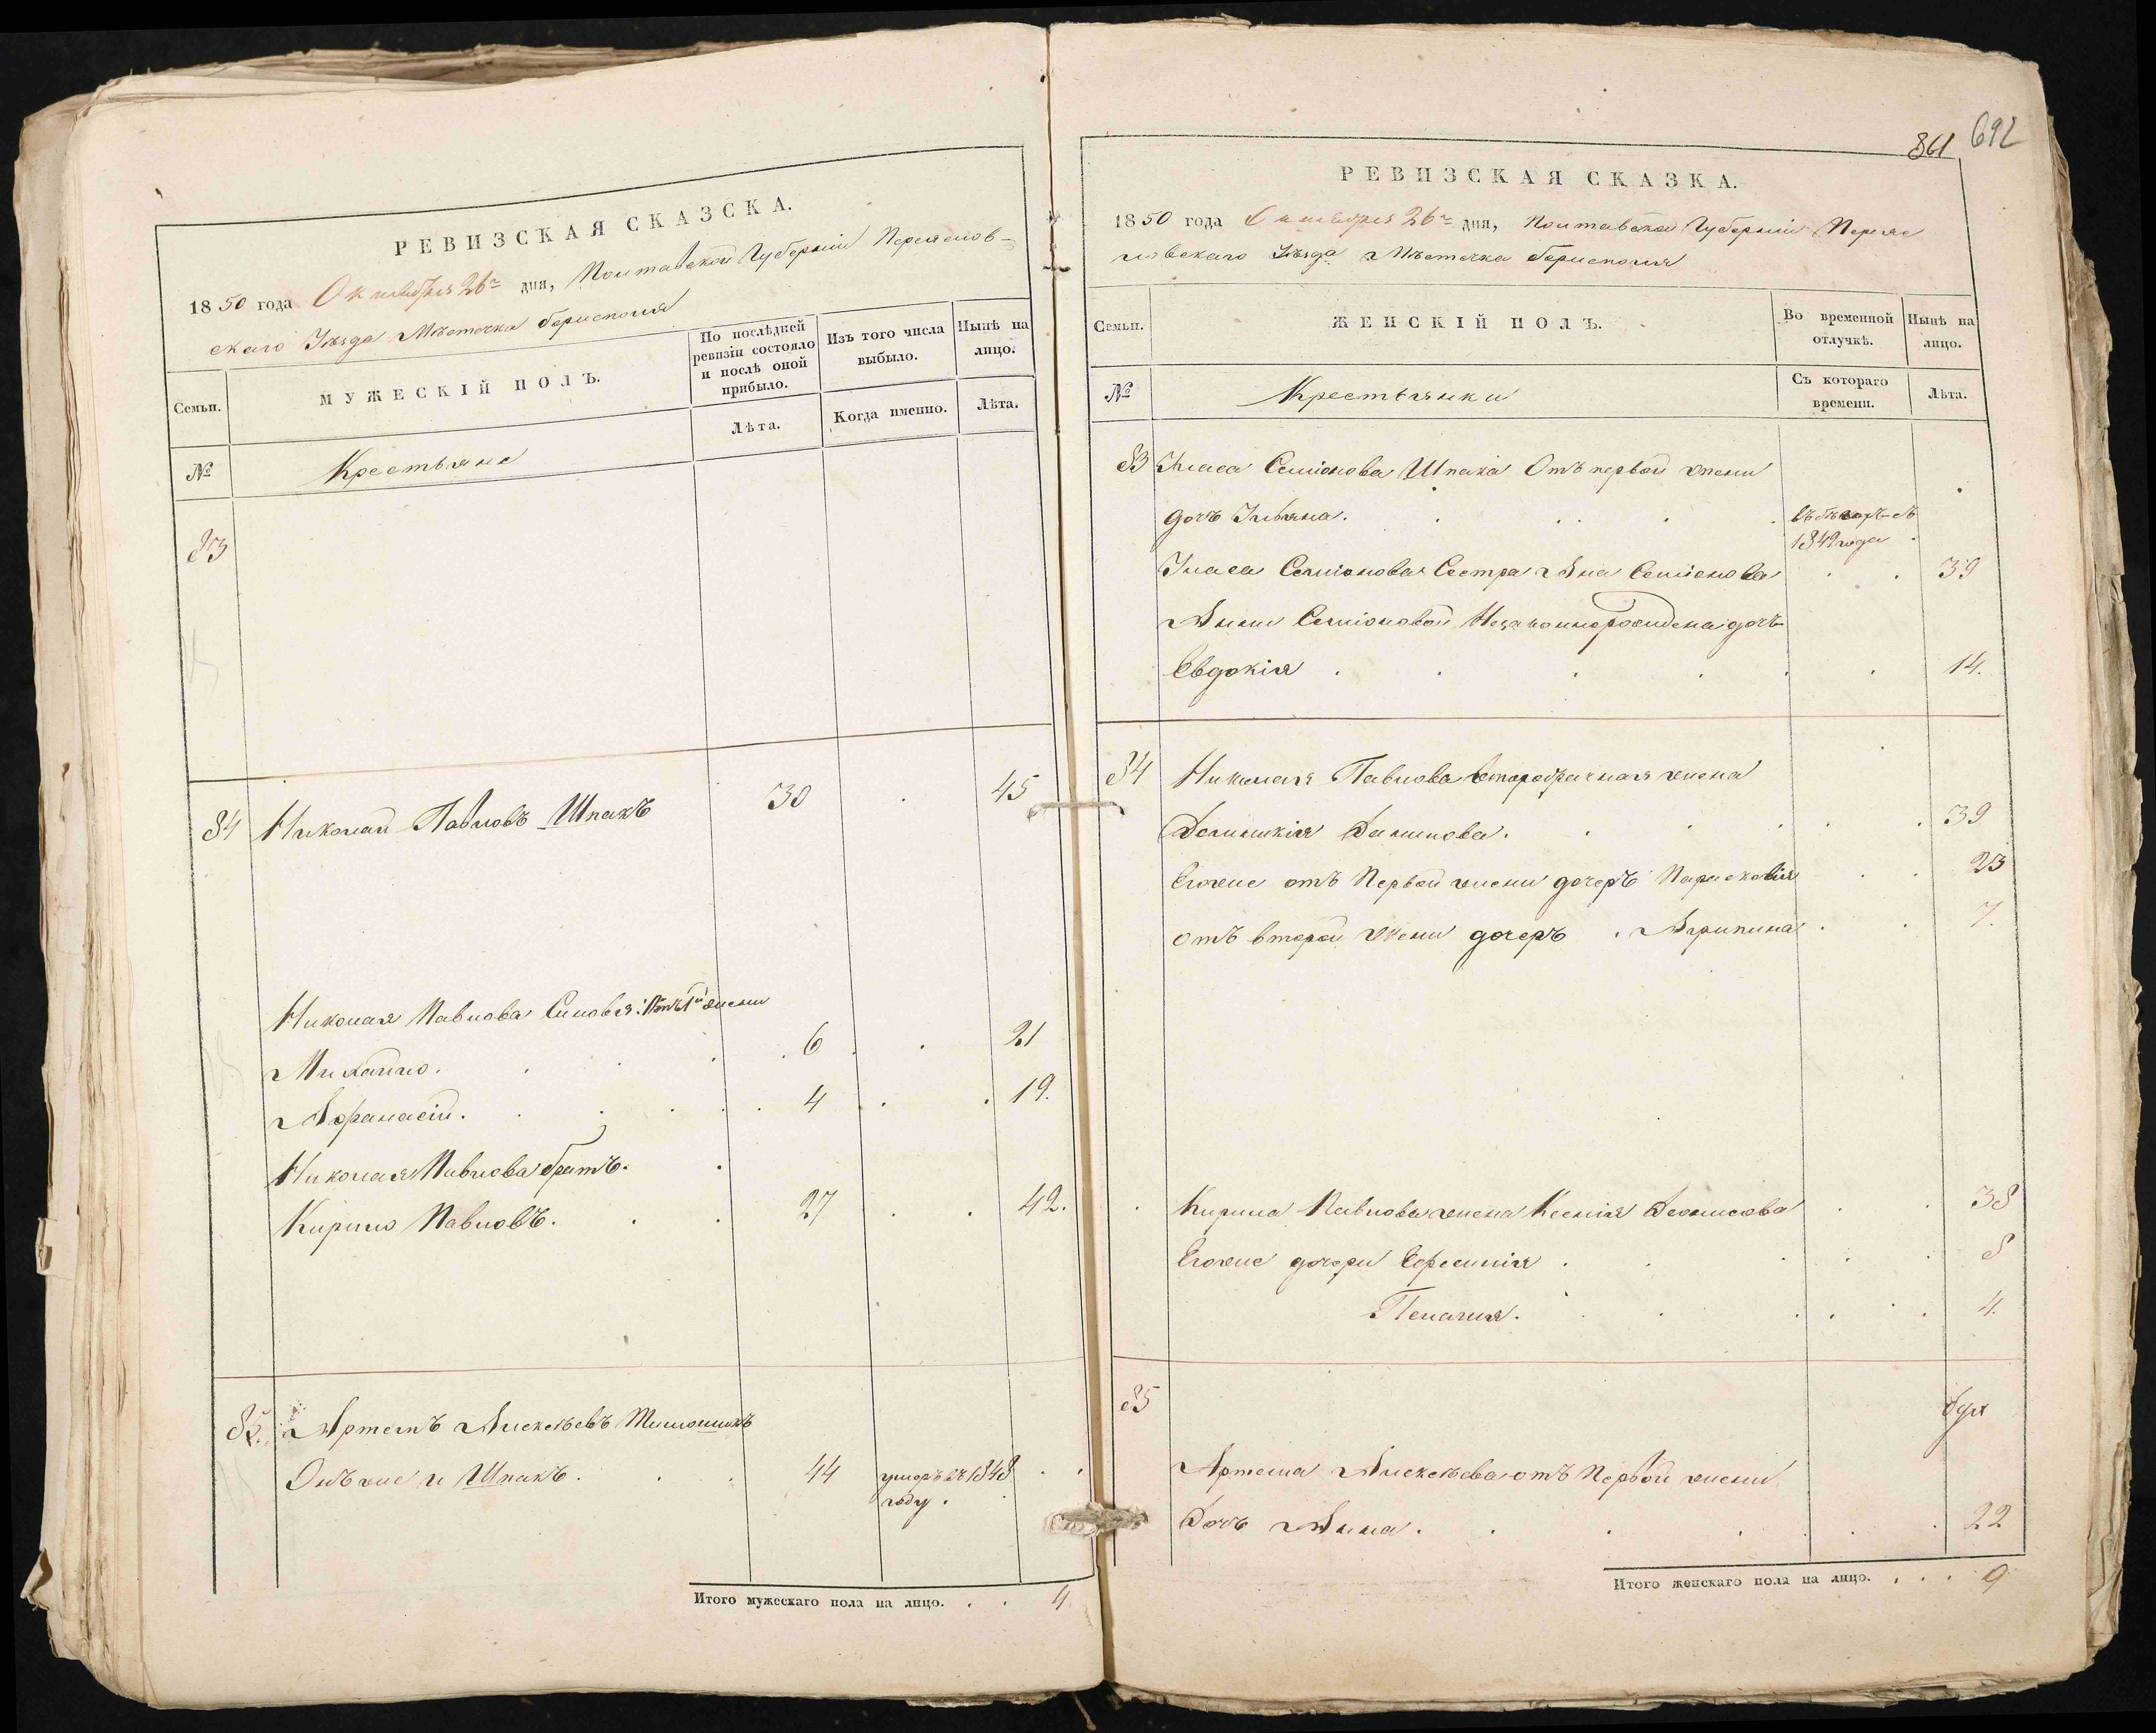 РЕВИЗСКАЯ СКАЗСКА.
1850 года Октября 26го дня, Полтавской Губерніи Переяслов-
скаго Уѣзда Мѣстечка Борисполя
Семьи.
МУЖЕСКІЙ ПОЛЪ.
По послѣдней ревизіи состояло и послѣ оной прибыло.
Изъ того числа выбыло.
Нынѣ на лицо.
№
Крестьяне
Лѣта.
Когда именно.
Лѣта.
83
84 Николай Павловъ Шпакъ 30 45
Николая Павлова Синовья: Отъ 1й жени
Михайло. 6 21
Афанасій. 4 19.
Николая Павлова братъ.
Кирило Павловъ. 27 42.
85. Артемъ Алексѣевъ
Онъ же и Шпакъ. 44 умеръ въ 1848
году.
Итого мужескаго пола на лицо. 4
861 692
РЕВИЗСКАЯ СКАЗКА.
1850 года Октября 26го дня, Полтавской Губерніи Переяс
ловскаго Уѣзда Мѣстечка Борисполя
Семьи.
ЖЕНСКІЙ ПОЛЪ.
Во временной отлучкѣ.
Нынѣ на лицо.
№
Крестьянки
Съ котораго времени.
Лѣта.
83 Власа Семіонова Шпака Отъ первой жени
дочь Ульяна. въ съ
184 года
Власа Семіонова Сестра Анна Семіонова 39
Анни Семіоновой Незаконнорождена дочь
Евдокія 14.
84 Николая Павлова второбрачная жена
Данилова. 39
Егоже отъ Первой жени дочеръ Парасковія 23
отъ второй жени дочеръ Агрипина 7.
Кирила Павлова жена Ксенія Денисова 38
Егоже дочери Ефросинія 8
Пелагия. 4.
85
Артема Алексѣева отъ Первой жени
Дочь Анна. 22
Итого женскаго пола на лицо. 9